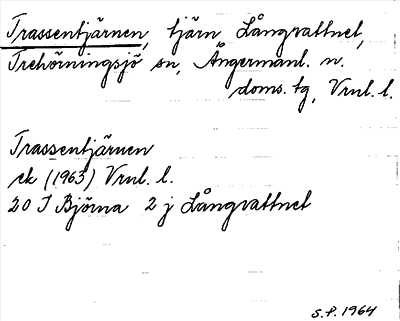 Trassentjärnen, tjärn Långvattnet,
Trehörningsjö sn, Ångermanl. n.
doms. tg, Vrnl. l.
Trassentjärnen
ek (1963) Vrnl. l.
20 I Björna 2 j Långvattnet
S.P. 1964